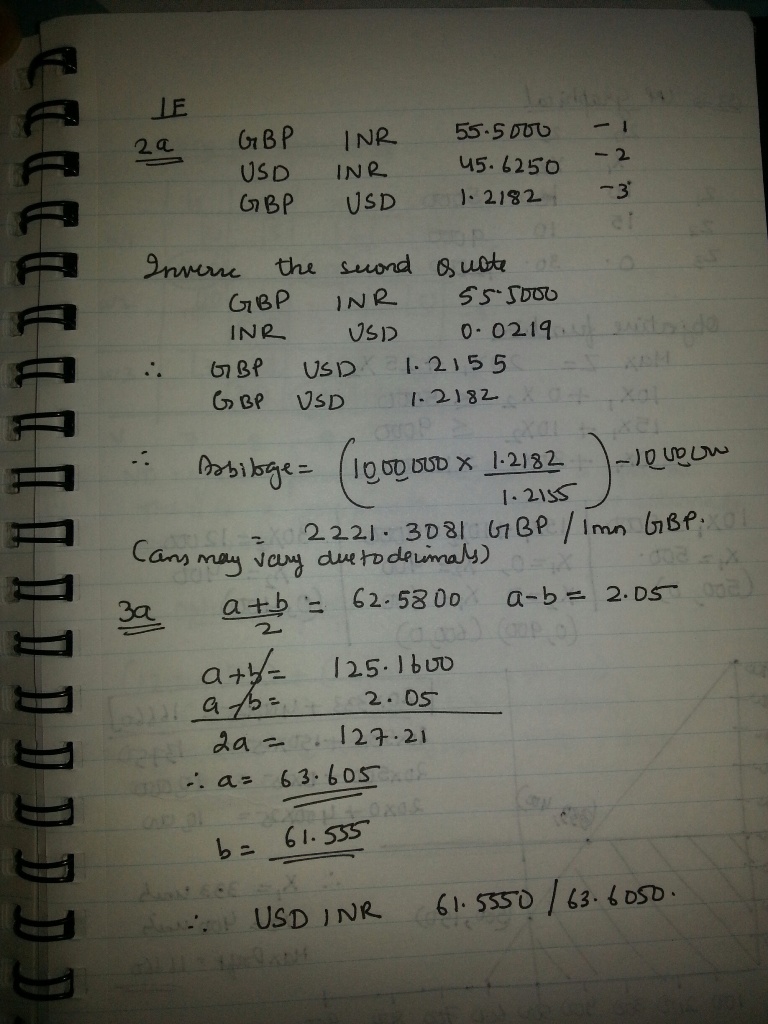 IF
2a GBP INR 55.5000 - 1
USD INR 45.6250 - 2
GBP USD 1.2182 - 3
Inverse the second Quote
GBP INR 55.5000
INR USD 0.0219
∴ GBP USD 1.2155
GBP USD 1.2182
∴ Arbibge = (1000000 × 1.2182 / 1.2155) - 1000000
= 2221.3081 GBP / 1mn GBP.
(ans may vary due to decimals)
3a a+b / 2 = 62.5800 a-b = 2.05
a+b = 125.1600
a-b = 2.05
2a = 127.21
∴ a = 63.605
b = 61.555
∴ USD INR 61.5550 / 63.6050.